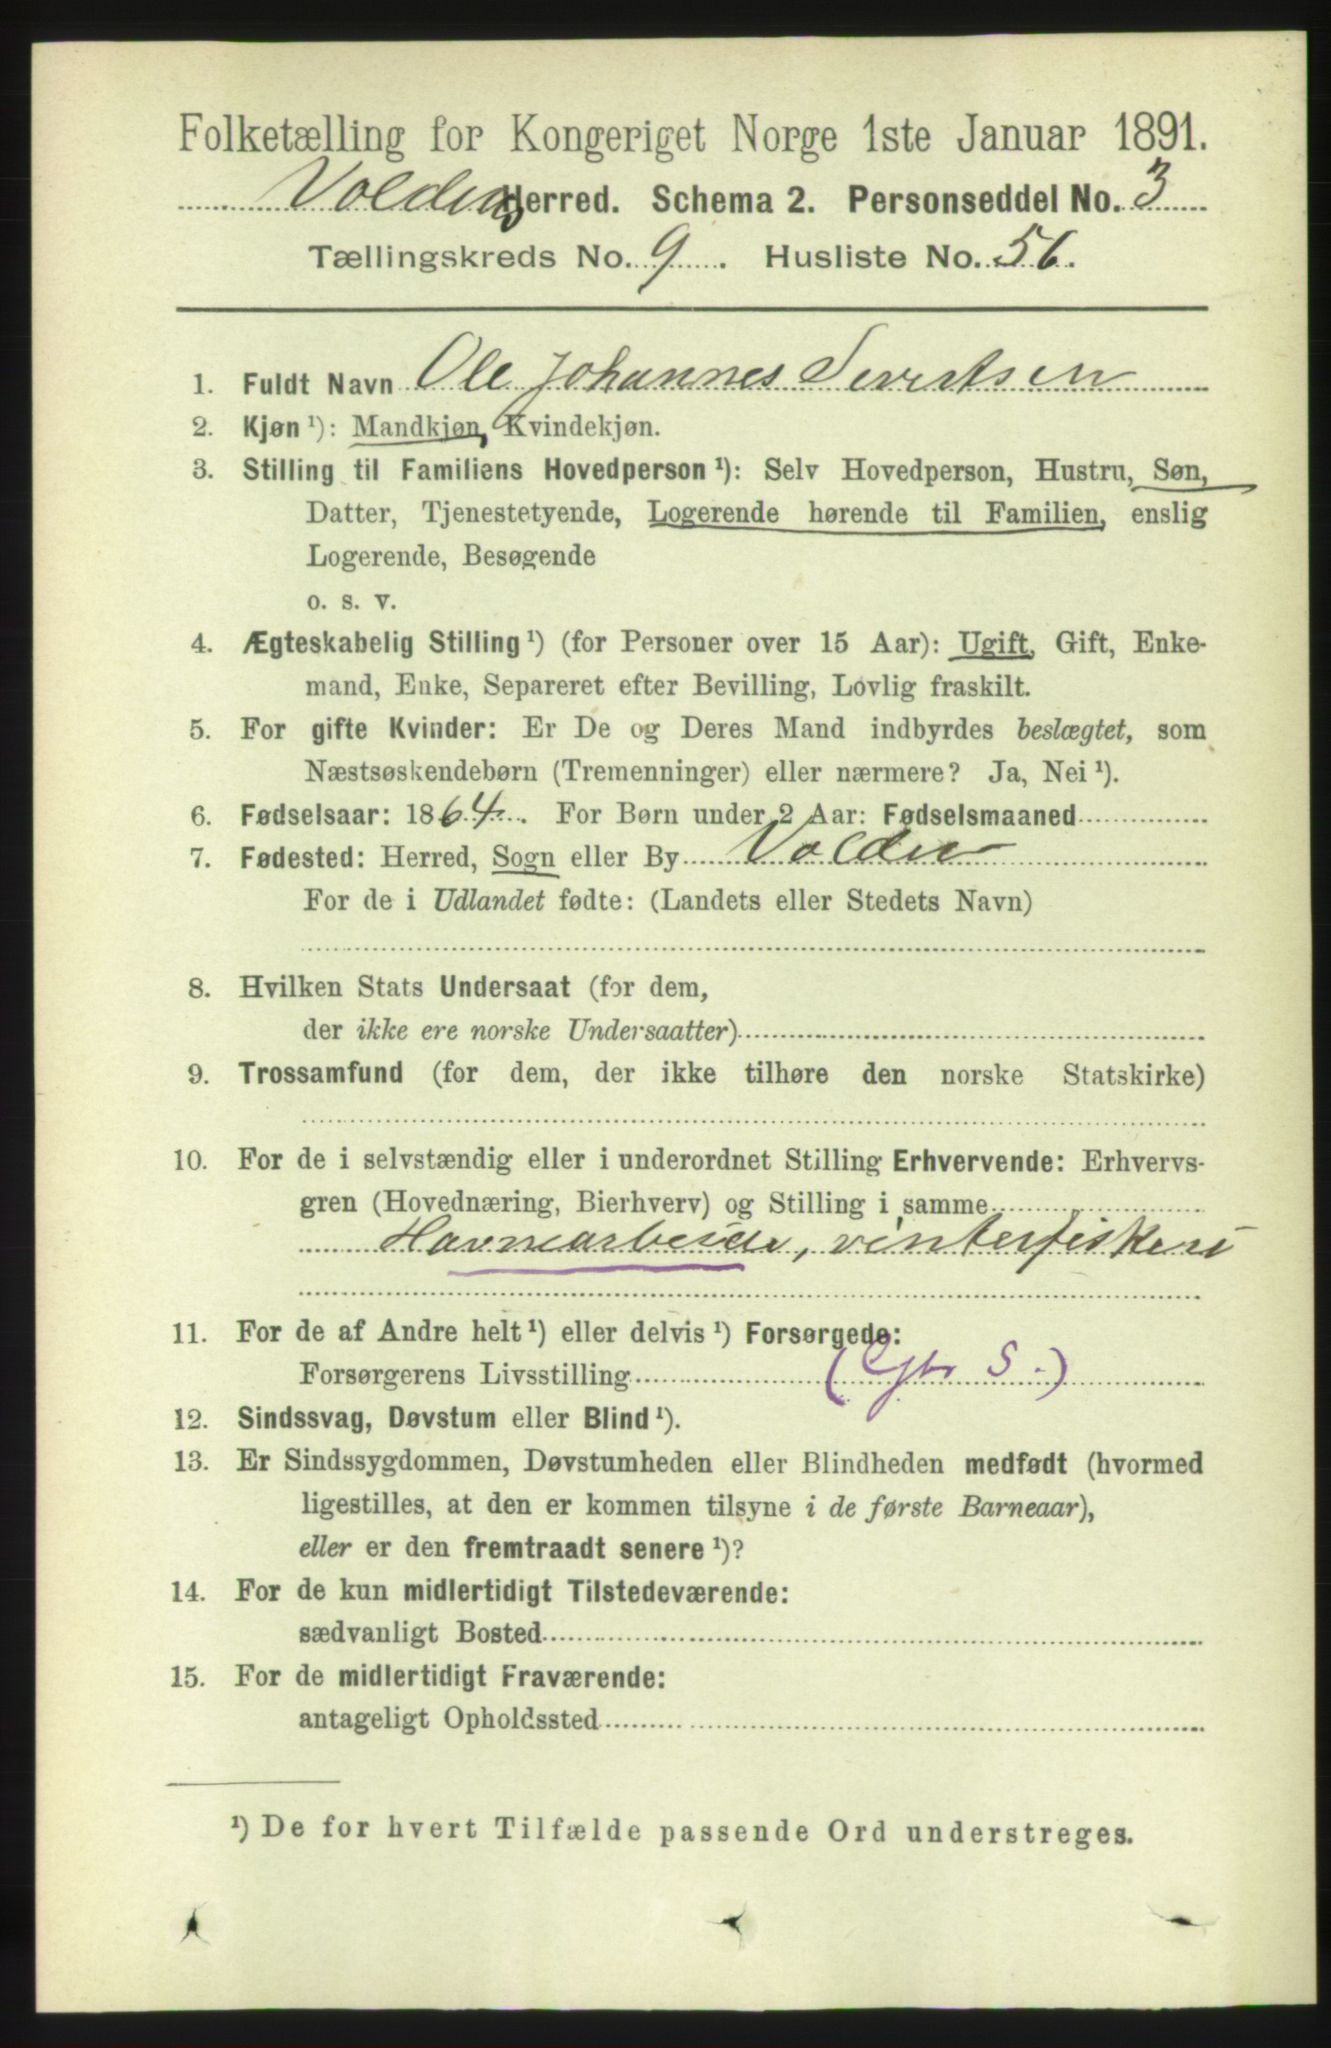 Folketælling for Kongeriget Norge 1ste Januar 1891.
Voldens Herred. Schema 2. Personseddel No. 3
Tællingskreds No. 9. Husliste No. 56.
1. Fuldt Navn Ole Johannes Sivertsen
2. Kjøn ¹): Mandkjøn, Kvindekjøn.
3. Stilling til Familiens Hovedperson ¹): Selv Hovedperson, Hustru, Søn,
Datter, Tjenestetyende, Logerende hørende til Familien, enslig
Logerende, Besøgende
o. s. v.
4. Ægteskabelig Stilling ¹) (for Personer over 15 Aar): Ugift, Gift, Enke-
mand, Enke, Separeret efter Bevilling, Lovlig fraskilt.
5. For gifte Kvinder: Er De og Deres Mand indbyrdes beslægtet, som
Næstsøskendebørn (Tremenninger) eller nærmere? Ja, Nei ¹).
6. Fødselsaar: 1864. For Børn under 2 Aar: Fødselsmaaned
7. Fødested: Herred, Sogn eller By Volden
For de i Udlandet fødte: (Landets eller Stedets Navn)
8. Hvilken Stats Undersaat (for dem,
der ikke ere norske Undersaatter)
9. Trossamfund (for dem, der ikke tilhøre den norske Statskirke)
10. For de i selvstændig eller i underordnet Stilling Erhvervende: Erhvervs-
gren (Hovednæring, Bierhverv) og Stilling i samme
Havnearbeide, vinterfiskeri
11. For de af Andre helt ¹) eller delvis ¹) Forsørgede:
Forsørgerens Livsstilling (Gbr S.)
12. Sindssvag, Døvstum eller Blind ¹).
13. Er Sindssygdommen, Døvstumheden eller Blindheden medfødt (hvormed
ligestilles, at den er kommen tilsyne i de første Barneaar),
eller er den fremtraadt senere ¹)?
14. For de kun midlertidigt Tilstedeværende:
sædvanligt Bosted
15. For de midlertidigt Fraværende:
antageligt Opholdssted
¹) De for hvert Tilfælde passende Ord understreges.